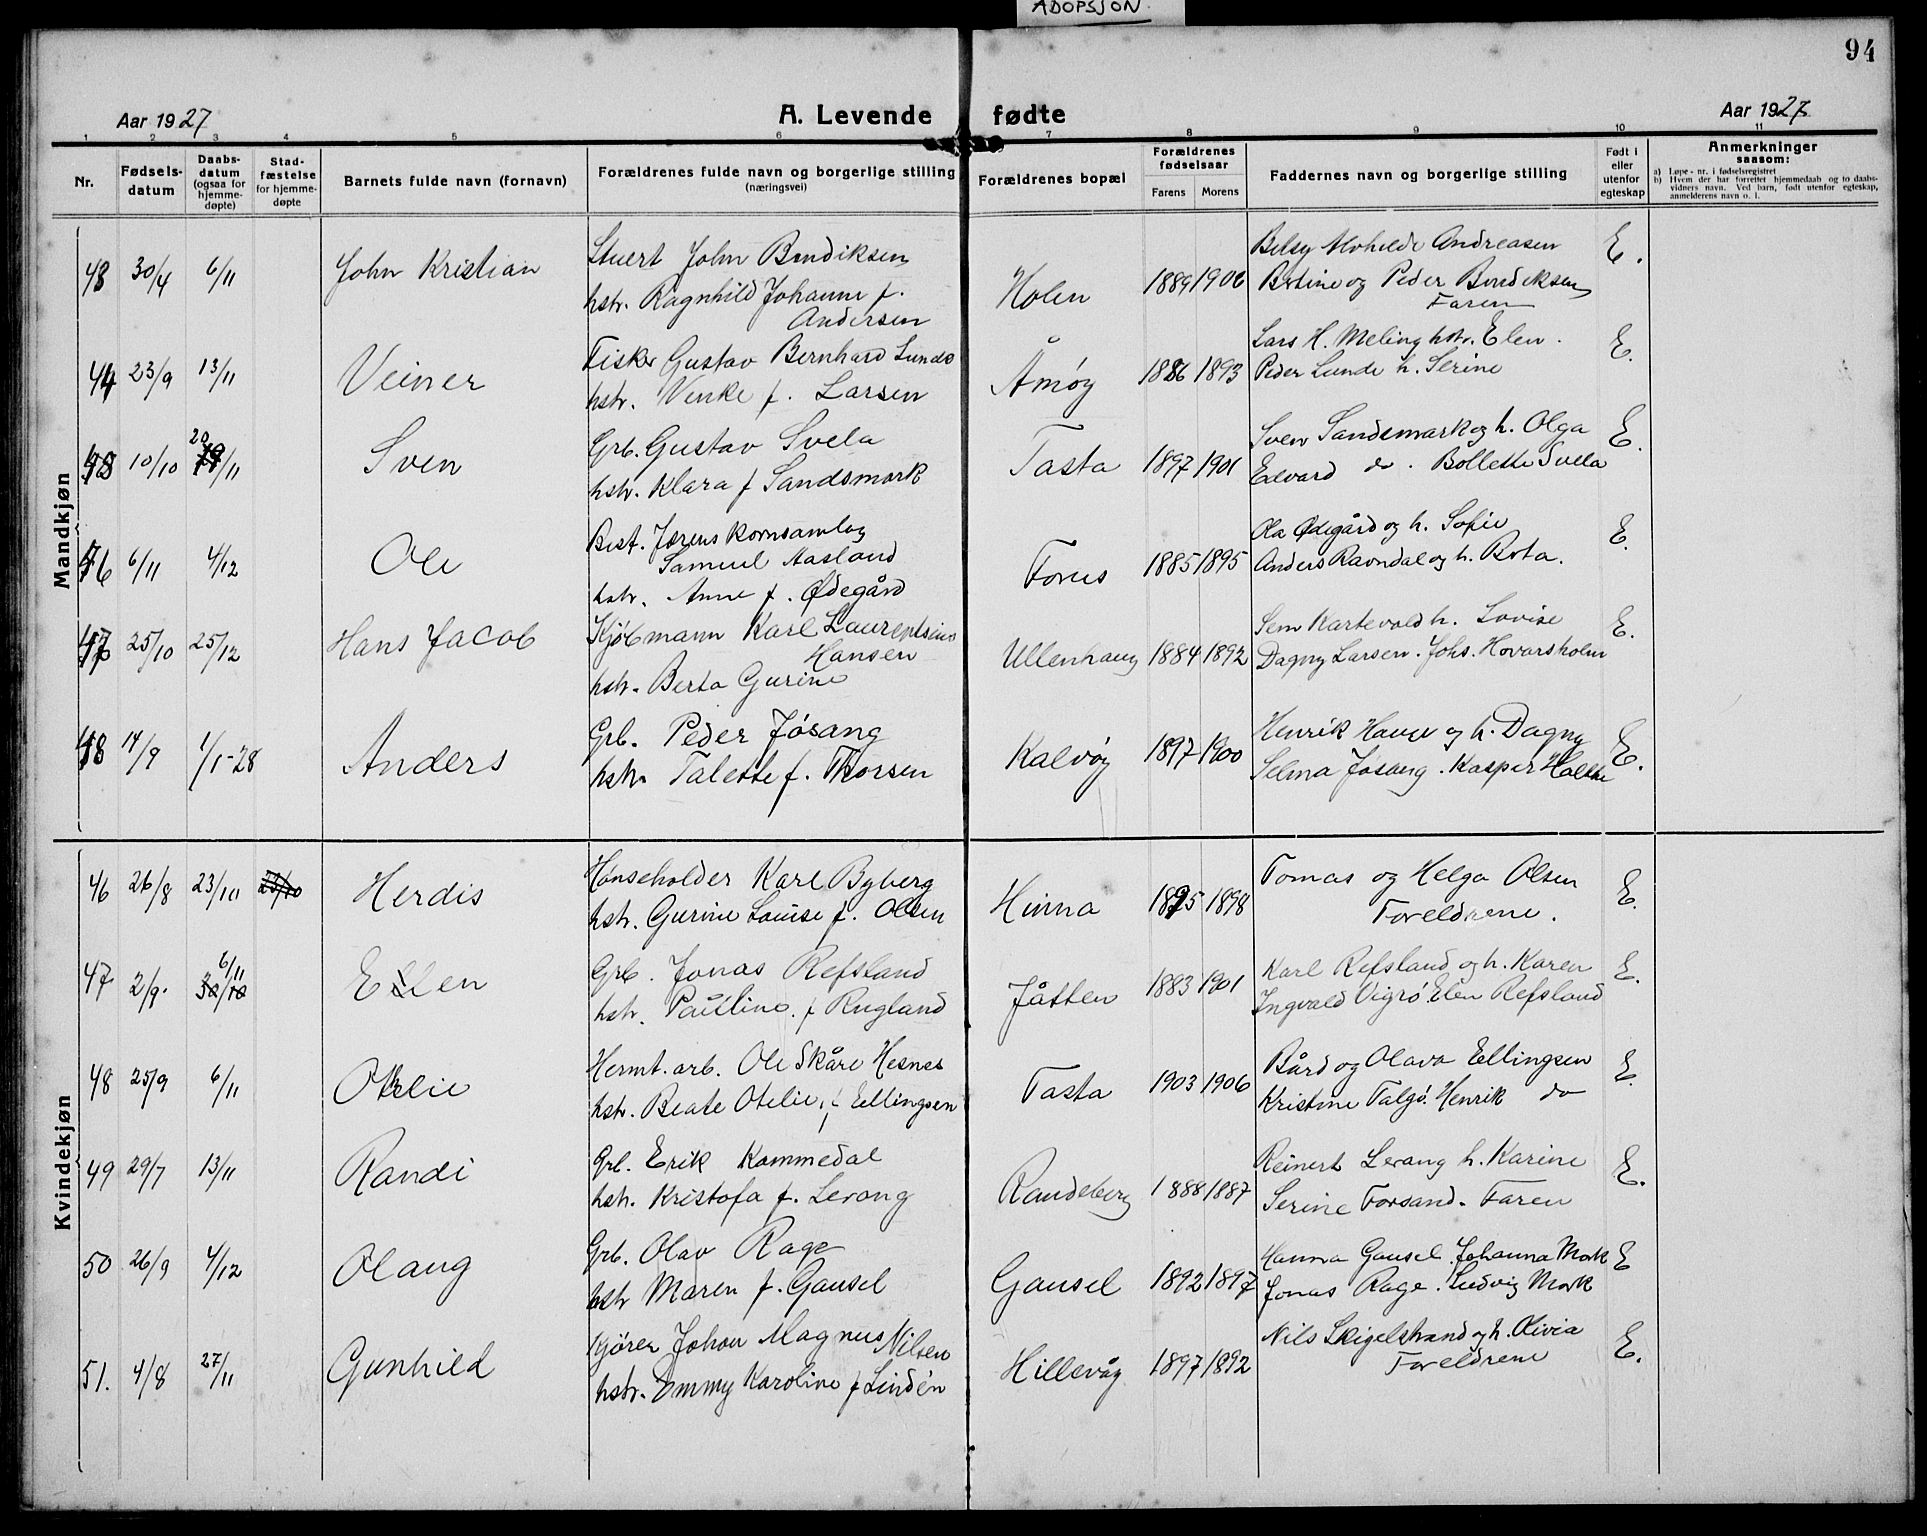 ADOPSJON.
94
Aar 1927
A. Levende fødte
Aar 1927
1 2 3 4 5 6 7 8 9 10 11
Nr.
Fødsels-datum
Daabs-datum (ogsaa for hjemme-døpte)
Stad-fæstelse for hjemme-døpte
Barnets fulde navn (fornavn)
Forældrenes fulde navn og borgerlige stilling (næringsvei)
Forældrenes bopæl
Forældrenes fødselsaar
Farens Morens
Faddernes navn og borgerlige stilling
Født i eller utenfor egteskap
Anmerkninger
saasom:
a) Løpe-nr. i fødselsregistret
b) Hvem der har forrettet hjemmedaab og to daabs-
vidners navn. Ved barn, født utenfor egteskap,
anmelderens navn o. l.
Mandkjøn
43 30/4 6/11 John Kristian
Stuert John Bendiksen
hstr. Ragnhild Johanne f.
Andersen
Holen 1889 1906
Betsy Alvhilde Andreasen
Bertine og Peder Bendiksen
Faren
E.
44 23/9 13/11 Veiner
Fisker Gustav Bernhard Lunde
hstr. Venke f. Larsen
Åmøy 1886 1893
Lars H. Meling hstr. Elen.
Peder Lunde h. Serine
E.
45 10/10 20/11 Sven
Grb. Gustav Svela
hstr. Klara f Sandsmark
Tasta 1897 1901
Sven Sandsmark og h. Olga
Edvard do. Bollette Svela
E.
46 6/11 4/12 Ole
Best. Jærens Kornsamlag
Samuel Aasland
hstr. Anne f. Ødegård
Forus 1885 1895
Ola Ødegård og h. Sofie
Anders Ravndal og h. Berta.
E.
47 25/10 25/12 Hans Jacob
Kjøbmann Karl Laurentsius
Hansen
hstr. Berta Gurine
Ullenhaug 1884 1892
Sem Kartevold h. Lovise
Dagny Larsen. Johs. Hovarsholm
E.
48 14/9 1/1-28 Anders
Grb. Peder Jøsang
hstr. Talette f. Thorsen
Kalvøy 1897 1900
Henrik Hauge og h. Dagny
Selma Jøsang. Kasper
E.
Kvindekjøn
46 26/8 23/10 23/10 Herdis
Hønseholder Karl Byberg
hstr. Gurine Louise f. Olsen
Hinna 1895 1898
Tomas og Helga Olsen
Foreldrene.
E.
47 2/9. 6/11 30/10 Ellen
Grb. Jonas Refsland
hstr. Pauline. f Rugland
Jåtten 1883 1901
Karl Refsland og h. Karen
Ingvald Vigrø. Elen Refsland
E.
48 25/9 6/11 Otelie
Hermt. arb. Ole Skåre Hesnes
hstr. Beate Otelie, f Ellingsen
Tasta 1903 1906
Bård og Olava Ellingsen
Kristine Talgø. Henrik do
E.
49 29/7 13/11 Randi
Grb. Erik Kommedal
hstr. Kristofa f. Lerang
Randeberg 1888 1887
Reinert Lerang h. Karine
Serine Forsand. Faren
E.
50 26/9 4/12 Olaug
Grb. Olav Rage
hstr Maren f. Gausel
Gausel 1892 1897
Hanna Gausel. Johanna Mork
Jonas Rage. Ludvig Mork
E
51. 4/8 27/11 Gunhild
Kjører Johan Magnus Nilsen
hstr. Emmy Karoline f Lindén
Hillevåg 1897 1892
Nils Skigelstrand og h. Olivia
Foreldrene
E.